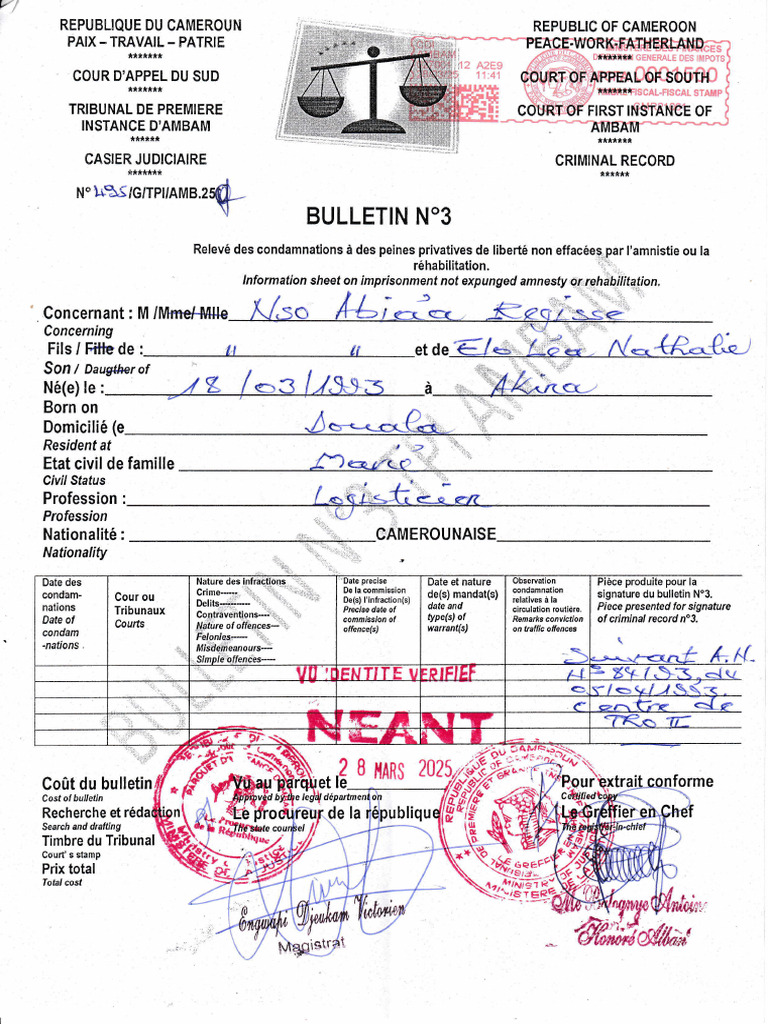 REPUBLIQUE DU CAMEROUN
PAIX – TRAVAIL – PATRIE
*******
COUR D'APPEL DU SUD
*******
TRIBUNAL DE PREMIERE
INSTANCE D'AMBAM
******
CASIER JUDICIAIRE
*******
N° 495/G/TPI/AMB.25
REPUBLIC OF CAMEROON
PEACE-WORK-FATHERLAND
*******
COURT OF APPEAL OF SOUTH
*******
COURT OF FIRST INSTANCE OF
AMBAM
*******
CRIMINAL RECORD
******
MINISTERE DES FINANCES
GENERALE DES IMPOTS
12 A2E9
11:41
0001500
FISCAL-FISCAL STAMP
BULLETIN N°3
Relevé des condamnations à des peines privatives de liberté non effacées par l'amnistie ou la
réhabilitation.
Information sheet on imprisonment not expunged amnesty or rehabilitation.
Concernant : M /Mme/ Mlle Nso Abia'a Regisse
Concerning
Fils / Fille de : " " et de Elo Léa Nathalie
Son / Daugther of
Né(e) le : 18/03/1993 à Akina
Born on
Domicilié (e Douala
Resident at
Etat civil de famille Marié
Civil Status
Profession : Logisticien
Profession
Nationalité : CAMEROUNAISE
Nationality
Date des
condam-
nations
Date of
condam
-nations
Cour ou
Tribunaux
Courts
Nature des Infractions
Crime------
Delits-----------
Contraventions----
Nature of offences---
Felonies------
Misdemeanours----
Simple offences-----
Date precise
De la commission
De(s) l'infraction(s)
Precise date of
commission of
offence(s)
Date et nature
de(s) mandat(s)
date and
type(s) of
warrant(s)
Observation
condamnation
relatives à la
circulation routière.
Remarks conviction
on traffic offences
Pièce produite pour la
signature du bulletin N°3.
Piece presented for signature
of criminal record n°3.
Suivant A.N.
N° 84/93, du
05/04/1993.
centre de
VU IDENTITE VERIFIEE
NEANT
BULLETIN N°3 TPI AMBAM
28 MARS 2025
Coût du bulletin
Cost of bulletin
Recherche et rédaction
Search and drafting
Timbre du Tribunal
Court' s stamp
Prix total
Total cost
Vu au parquet le
Approved by the legal départment on
Le procureur de la république
The state counsel
Pour extrait conforme
Certified copy
Le Greffier en Chef
The registrar-in-chief
Le Procureur
de la République
LE GREFFIER
Engwapi Djeukam Victorien
Magistrat
Antoine
Honoré Alban